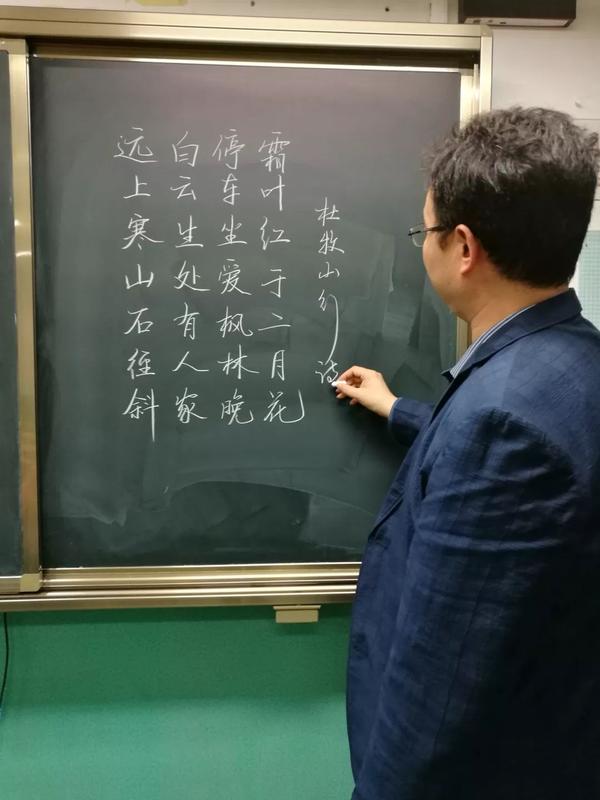 远上寒山石径斜
白云生处有人家
停车坐爱枫林晚
霜叶红于二月花
杜牧山行诗